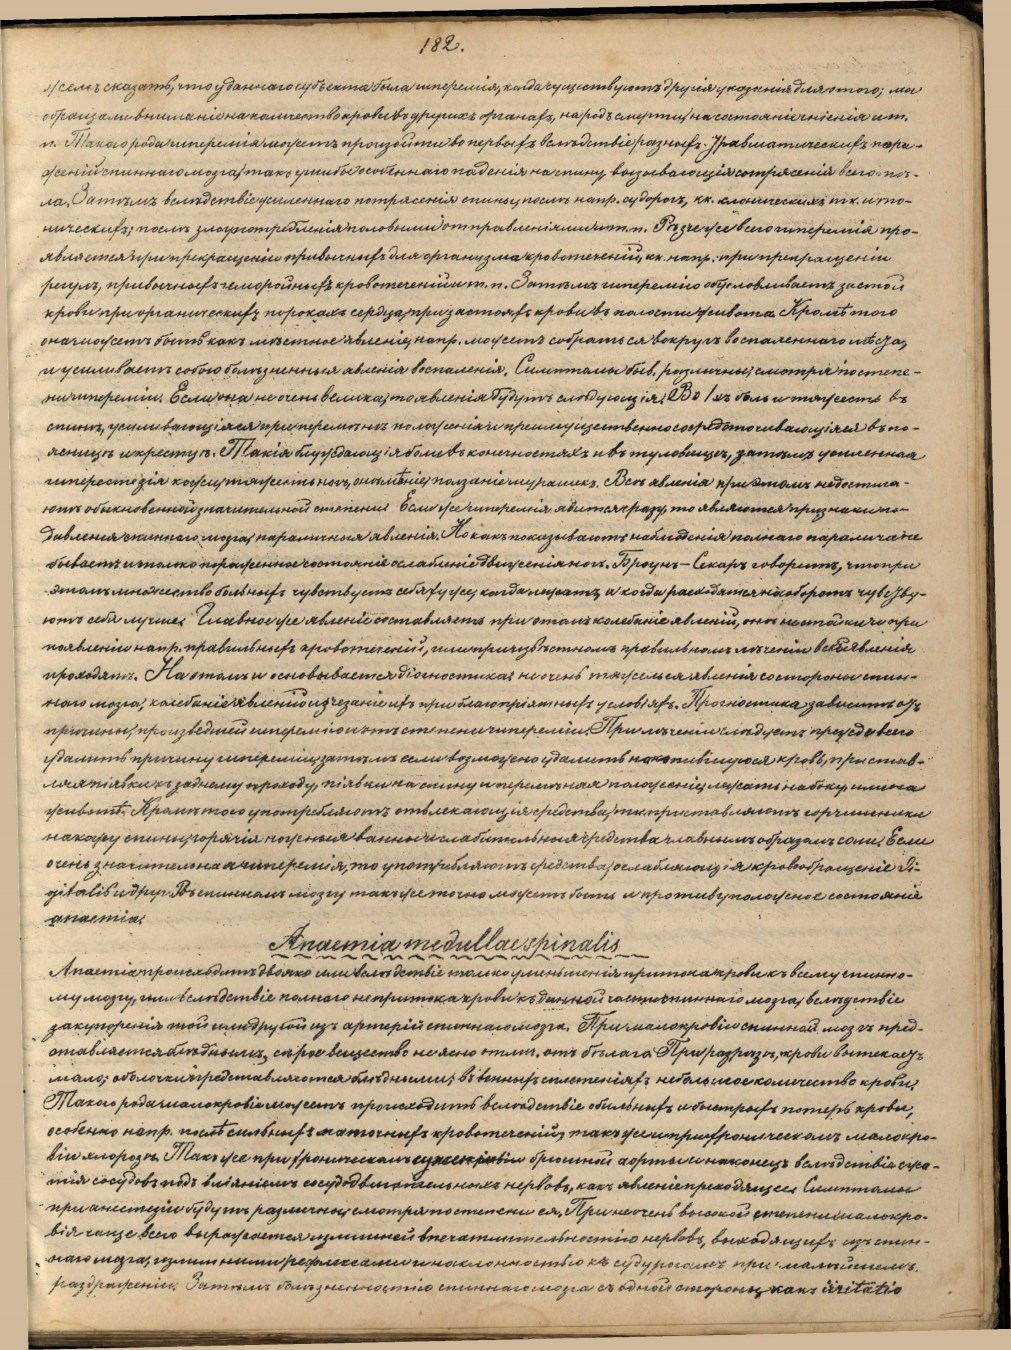 182.
жемъ сказать, что у даннаго субъекта была иперемія, когда существуютъ другія указанія для этого; мы
обращаемъ вниманіе на количество крови въ другихъ органахъ, на родъ смерти, на состояніе гніенія и т.
п. Такого рода иперемія можетъ произойти во первыхъ вслѣдствіе разныхъ травматическихъ пора-
женій спиннаго мозга, такъ ушибы особеннаго паденія на спину, вызывающія сотрясенія всего тѣ-
ла. Затѣмъ вслѣдствіе усиленнаго потрясенія спины, послѣ напр. судорогъ, кк. клоническихъ тк. и то-
ническихъ; послѣ злоупотребленія половыми отправленіями и т. п. Рѣзче же всего иперемія про-
является при прекращеніи привычныхъ для организма кровотеченій, кк. напр. при прекращеніи
регулъ, привычныхъ гемороидныхъ кровотеченій и т. п. Затѣмъ иперемію обусловливаетъ застой
крови при органическихъ порокахъ сердца, при застояхъ крови въ полости живота. Кромѣ того
она можетъ быть какъ мѣстное явленіе, напр. можетъ собраться вокругъ воспаленнаго мѣста,
и усиливаетъ собою болѣзненныя явленія воспаленія. Симптомы быв. различны, смотря по степе-
ни ипереміи. Если она не очень велика, то явленія будутъ слѣдующія: Во 1хъ боль и тяжесть въ
спинѣ, усиливающіяся при перемѣнѣ положенія и преимущественно сосредоточивающіяся въ по-
ясницѣ и крестцѣ. Такія блуждающія боли въ конечностяхъ и въ туловищѣ, затѣмъ усиленная
иперестезія кожи, тяжесть ногъ, онѣмѣніе, ползаніе мурашекъ. Всѣ явленія при этомъ не достига-
ютъ обыкновенной значительной степени. Если же иперемія явится сразу, то являются признаки по-
давленія спиннаго мозга, параличныя явленія. Но какъ показываютъ наблюденія полнаго паралича не
бываетъ и только пораженное состояніе ослабленіе движенія ногъ. Броунъ-Секаръ говоритъ, что при
этомъ множество больныхъ чувствуютъ себя хуже когда лежатъ, а когда расходятся наоборотъ чувству-
ютъ себя лучше. Главное же явленіе составляетъ при этомъ колебаніе явленій, онѣ не стойки и при
появленіи напр. правильныхъ кровотеченій, или при извѣстномъ правильномъ леченіи всѣ явленія
проходятъ. На этомъ и основывается діагностика: не очень тяжелыя явленія со стороны спин-
наго мозга, колебаніе явленій и изчезаніе ихъ при благопріятныхъ условіяхъ. Прогностика зависитъ отъ
причины, произведшей иперемію и отъ степени ипереміи. При леченіи слѣдуетъ прежде всего
удалить причину ипереміи, затѣмъ если возможно удалить накопившуюся кровь, пристав-
ляя піявки къ заднему проходу, піявки на спину и перемѣняя положеніе, лежать на боку или на
животѣ. Кромѣ того употребляютъ отвлекающія средства, тк. приставляютъ горчишники
на кожу спины, горячія ножныя ванны и слабительныя средства главнымъ образомъ соли. Если
очень значительная иперемія, то употребляютъ средства, ослабляющія кровообращеніе di-
gitalis и друг. Въ спинномъ мозгу также точно можетъ быть и противуположное состояніе
anaemia.
Anaemia medullae spinalis
Anaemia происходитъ двояко или вслѣдствіе только уменьшенія притока крови къ всему спинно-
му мозгу, или вслѣдствіе полнаго непритока крови къ данной части спиннаго мозга, вслѣдствіе
закупоренія той или другой изъ артерій спиннаго мозга. При малокровіи спинной мозгъ пред-
ставляется блѣднымъ, сѣрое вещество не ясно отлич. отъ бѣлаго. При разрѣзѣ, крови вытекаетъ
мало; оболочки представляются блѣдными; въ венныхъ сплетеніяхъ небольшое количество крови.
Такого рода малокровіе можетъ происходить вслѣдствіе обильныхъ и быстрыхъ потерь крови,
особенно напр. послѣ сильныхъ маточныхъ кровотеченій, также и при хроническомъ малокро-
віи хлорозѣ. Также при хроническомъ суженіи брюшной аорты и наконецъ вслѣдствіе сжа-
тія сосудовъ подъ вліяніемъ сосудодвигательныхъ нервовъ, какъ явленіе преходящее. Симптомы
при анестезіи будутъ различны, смотря по степени ея. При неочень высокой степени малокро-
вія чаще всего выражается излишней впечатлительностію нервовъ, выходящихъ изъ спин-
наго мозга, излишними рефлексами и наклонностью къ судорогамъ при малѣйшемъ
раздраженіи. Затѣмъ болѣзненностію спиннаго мозга съ одной стороны, какъ irritatio